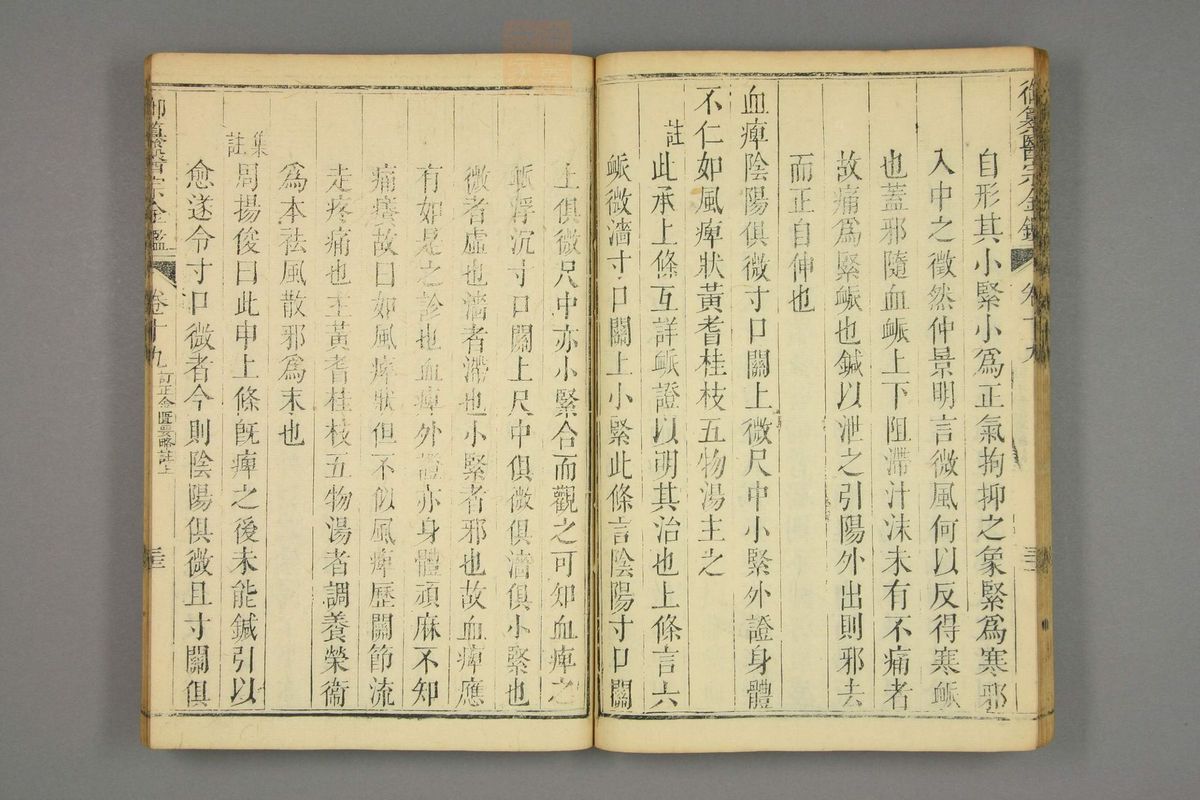 御纂醫宗金鑑 卷十九
自形其小緊小爲正氣拘抑之象緊爲寒邪
入中之徵然仲景明言微風何以反得寒脈
也蓋邪隨血脈上下阻滯汁沫未有不痛者
故痛爲緊脈也鍼以泄之引陽外出則邪去
而正自伸也
血痺陰陽俱微寸口關上微尺中小緊外證身體
不仁如風痺狀黃耆桂枝五物湯主之
註此承上條互詳脈證以明其治也上條言六
脈微濇寸口關上小緊此條言陰陽寸口關
上俱微尺中亦小緊合而觀之可知血痺之
脈浮沉寸口關上尺中俱微俱濇俱小緊也
微者虛也濇者滯也小緊者邪也故血痺應
有如是之診也血痺外證亦身體頑麻不知
痛癢故曰如風痺狀但不似風痺歷關節流
走疼痛也主黃耆桂枝五物湯者調養榮衞
爲本祛風散邪爲末也
集註周揚俊曰此申上條旣痺之後未能鍼引以
愈遂令寸口微者今則陰陽俱微且寸關俱
御纂醫宗金鑑 卷十九 訂正金匱要略註上 三三